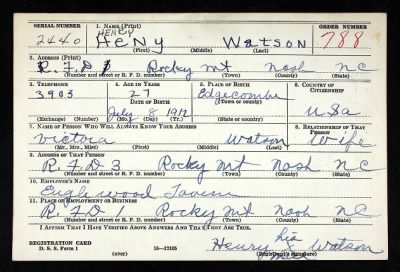 SERIAL NUMBER 1. NAME (Print) ORDER NUMBER
HENRY
2440 HeNy Watson 788
(First) (Middle) (Last)
2. ADDRESS (Print)
R.F.D 1 Rocky mt Nash NC
(Number and street or R. F. D. number) (Town) (County) (State)
3. TELEPHONE 4. AGE IN YEARS 5. PLACE OF BIRTH 6. COUNTRY OF CITIZENSHIP
3903 27 Edgecombe
DATE OF BIRTH (Town or county)
July 8 1912 USa
(Exchange) (Number) (Mo.) (Day) (Yr.) (State or country)
7. NAME OF PERSON WHO WILL ALWAYS KNOW YOUR ADDRESS 8. RELATIONSHIP OF THAT PERSON
Victoria Watson Wife
(Mr., Mrs., Miss) (First) (Middle) (Last)
9. ADDRESS OF THAT PERSON
R.F.D 3 Rocky mt Nash NC
(Number and street or R. F. D. number) (Town) (County) (State)
10. EMPLOYER'S NAME
wood
11. PLACE OF EMPLOYMENT OR BUSINESS
R.F.D 1 Rocky mt Nash NC
(Number and street or R. F. D. number) (Town) (County) (State)
I AFFIRM THAT I HAVE VERIFIED ABOVE ANSWERS AND THAT THEY ARE TRUE.
REGISTRATION CARD his
D. S. S. Form 1 16—17105 Henry Watson
(over) (Registrant's signature)